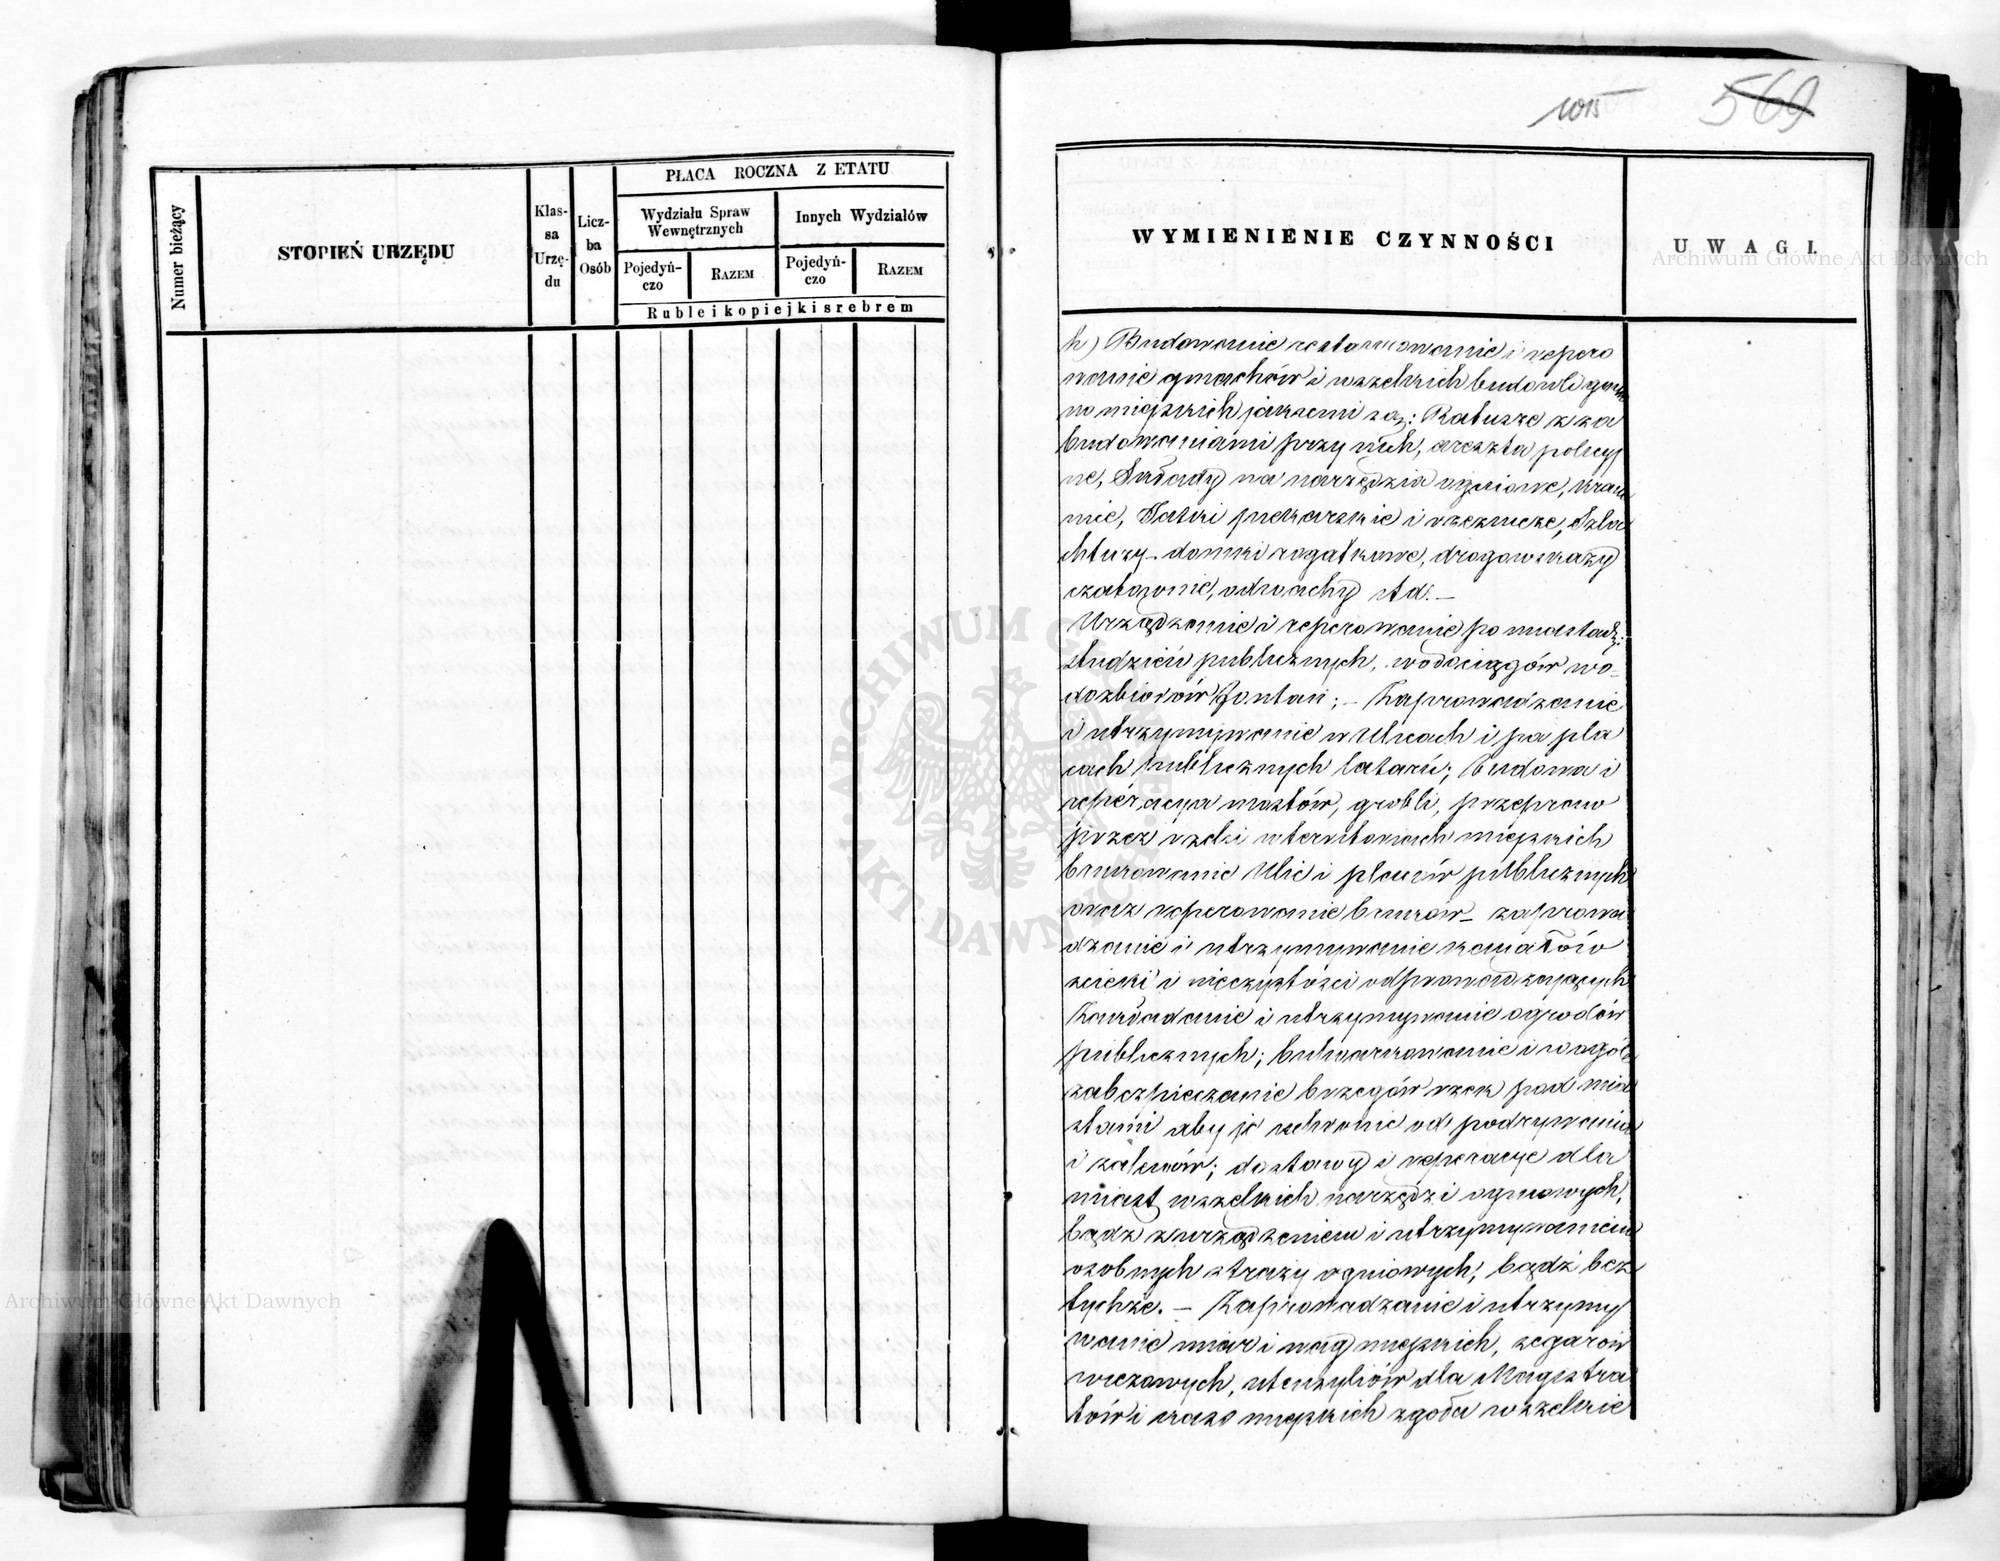 Numer bieżący
STOPIEŃ URZĘDU
Klas-
sa
Urzę-
du
Licz-
ba
Osób
PŁACA ROCZNA Z ETATU
Wydziału Spraw
Wewnętrznych
Innych Wydziałów
Pojedyń-
czo
RAZEM
Pojedyń-
czo
RAZEM
Ruble i kopiejki srebrem
1015
569
WYMIENIENIE CZYNNOŚCI
UWAGI.
h) Budowanie restaurowanie i repero
wanie gmachów i wszelkich budowli
no miejskich jakiemi są: Ratusze z za
budowaniami przy nich, areszta policyj
ne, Składy na narzędzia ogniowe, kram
nice, Jatki piekarskie i rzeźnicze, Szla
chtuzy – domki rogatkowe, drogowskazy
czatownie, odwachy itd. –
Urządzanie i reperowanie po miastach:
studzień publicznych, wodociągów wo-
dozbiorów fontan; – Zaprowadzanie
i utrzymywanie w Ulicach i po pla
cach publicznych latarń; budowa i
reperacya mostów, grobli, przepraw
przez rzeki w teritoriach miejskich
brukowanie Ulic i placów publicznych
oraz reperowanie bruków – zaprowa
dzanie i utrzymywanie kanałów
ścieki i nieczystości odprowadzających
Zakładanie i utrzymywanie ogrodów
publicznych; bulwarkowanie i wogóle
zabezpieczanie brzegów rzek pod mia
stami aby je uchronić od podrywania
i zalewów; dostawy i reperacye dla
miast wszelkich narzędzi ogniowych,
bądź z urządzeniem i utrzymywaniem
osobnych straży ogniowych, bądź bez
tychże. – Zaprowadzanie i utrzymy
wanie miar i wag miejskich, zegarów
wieżowych, utensyliów dla Magistra
tów i kass miejskich zgoła wszelkie
Archiwum Główne Akt Dawnych
ARCHIWUM GŁÓWNE AKT DAWNYCH
Archiwum Główne Akt Dawnych